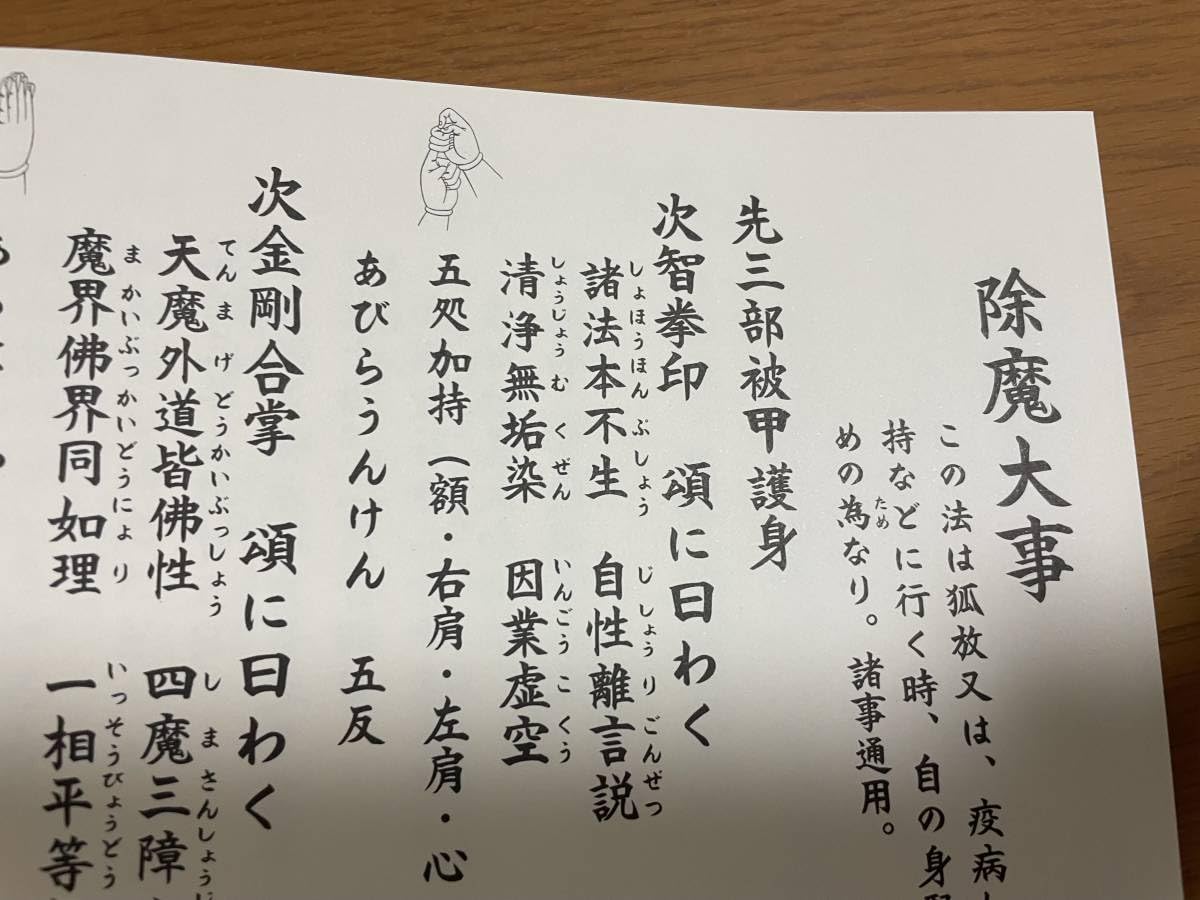 除魔大事
この法は狐放又は、疫病
持などに行く時、自の身
めの為なり。諸事通用。
ため
先三部被甲護身
次智拳印 頌に曰わく
しょほうほん ぶしょう じしょう り ごんぜつ
諸法本不生 自性離言説
しょうじょう む くぜん いんごう こ くう
清浄無垢染 因業虚空
五処加持(額・右肩・左肩・心
あびらうんけん 五反
次金剛合掌 頌に曰わく
てん ま げ どうかいぶっしょう し ま さんしょう
天魔外道皆佛性 四魔三障
ま かいぶっかいどうにょ り いっそうびょうどう
魔界佛界同如理 一相平等